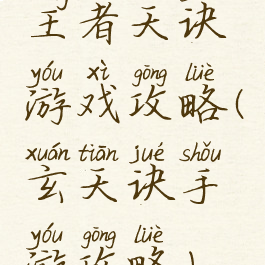 王者天诀
yóu xì gōng lüè
游戏攻略(
xuán tiān jué shǒu
玄天诀手
yóu gōng lüè
游攻略)